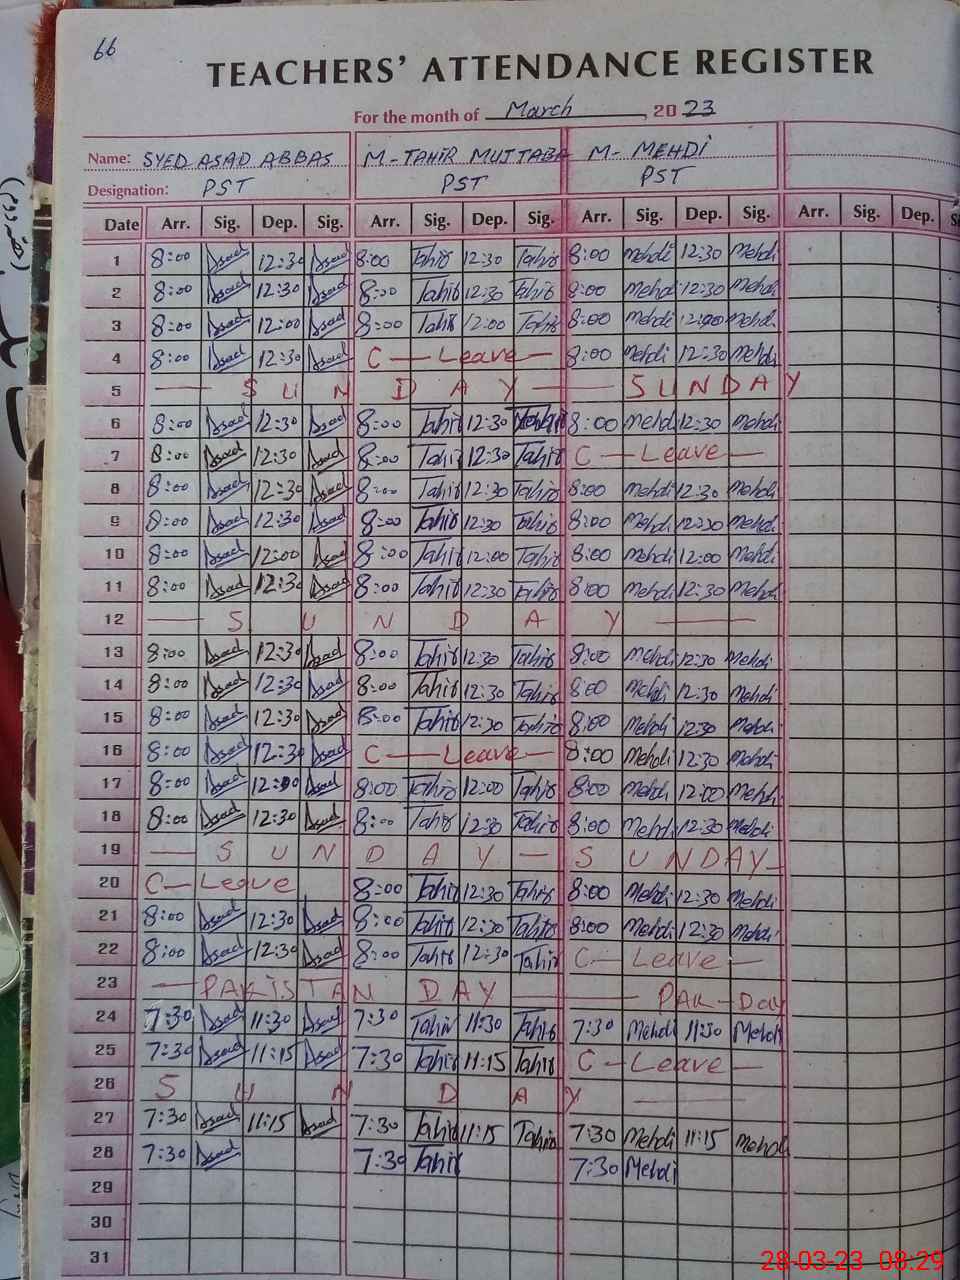 66
TEACHERS' ATTENDANCE REGISTER
For the month of March, 2023
Name: SYED ASAD ABBAS M-TAHIR MUJTABA M-MEHDi
Designation: PST PST PST
Date Arr. Sig. Dep. Sig. Arr. Sig. Dep. Sig. Arr. Sig. Dep. Sig. Arr. Sig. Dep.
1 8:00 Asad 12:30 Asad 8:00 Tahir 12:30 Tahir 8:00 Mehdi 12:30 Mehdi
2 8:00 Asad 12:30 Asad 8:00 Tahir 12:30 Tahir 8:00 Mehdi 12:30 Mehdi
3 8:00 Asad 12:00 Asad 8:00 Tahir 12:00 Tahir 8:00 Mehdi 12:00 Mehdi
4 8:00 Asad 12:30 Asad C — Leave — 8:00 Mehdi 12:30 Mehdi
5 — SUNDAY — SUNDAY
6 8:00 Asad 12:30 Asad 8:00 Tahir 12:30 Tahir 8:00 Mehdi 12:30 Mehdi
7 8:00 Asad 12:30 Asad 8:00 Tahir 12:30 Tahir C — Leave —
8 8:00 Asad 12:30 Asad 8:00 Tahir 12:30 Tahir 8:00 Mehdi 12:30 Mehdi
9 8:00 Asad 12:30 Asad 8:00 Tahir 12:30 Tahir 8:00 Mehdi 12:30 Mehdi
10 8:00 Asad 12:00 Asad 8:00 Tahir 12:00 Tahir 8:00 Mehdi 12:00 Mehdi
11 8:00 Asad 12:30 Asad 8:00 Tahir 12:30 Tahir 8:00 Mehdi 12:30 Mehdi
12 — SUNDAY —
13 8:00 Asad 12:30 Asad 8:00 Tahir 12:30 Tahir 8:00 Mehdi 12:30 Mehdi
14 8:00 Asad 12:30 Asad 8:00 Tahir 12:30 Tahir 8:00 Mehdi 12:30 Mehdi
15 8:00 Asad 12:30 Asad 8:00 Tahir 12:30 Tahir 8:00 Mehdi 12:30 Mehdi
16 8:00 Asad 12:30 Asad C — Leave — 8:00 Mehdi 12:30 Mehdi
17 8:00 Asad 12:00 Asad 8:00 Tahir 12:00 Tahir 8:00 Mehdi 12:00 Mehdi
18 8:00 Asad 12:30 Asad 8:00 Tahir 12:30 Tahir 8:00 Mehdi 12:30 Mehdi
19 — SUNDAY — SUNDAY —
20 C — Leave 8:00 Tahir 12:30 Tahir 8:00 Mehdi 12:30 Mehdi
21 8:00 Asad 12:30 Asad 8:00 Tahir 12:30 Tahir 8:00 Mehdi 12:30 Mehdi
22 8:00 Asad 12:30 Asad 8:00 Tahir 12:30 Tahir C — Leave —
23 — PAKISTAN DAY — PAK-Day
24 7:30 Asad 11:30 Asad 7:30 Tahir 11:30 Tahir 7:30 Mehdi 11:30 Mehdi
25 7:30 Asad 11:15 Asad 7:30 Tahir 11:15 Tahir C — Leave —
26 SUNDAY —
27 7:30 Asad 11:15 Asad 7:30 Tahir 11:15 Tahir 7:30 Mehdi 11:15 Mehdi
28 7:30 Asad 7:30 Tahir 7:30 Mehdi
29
30
31
28-03-23 08:29